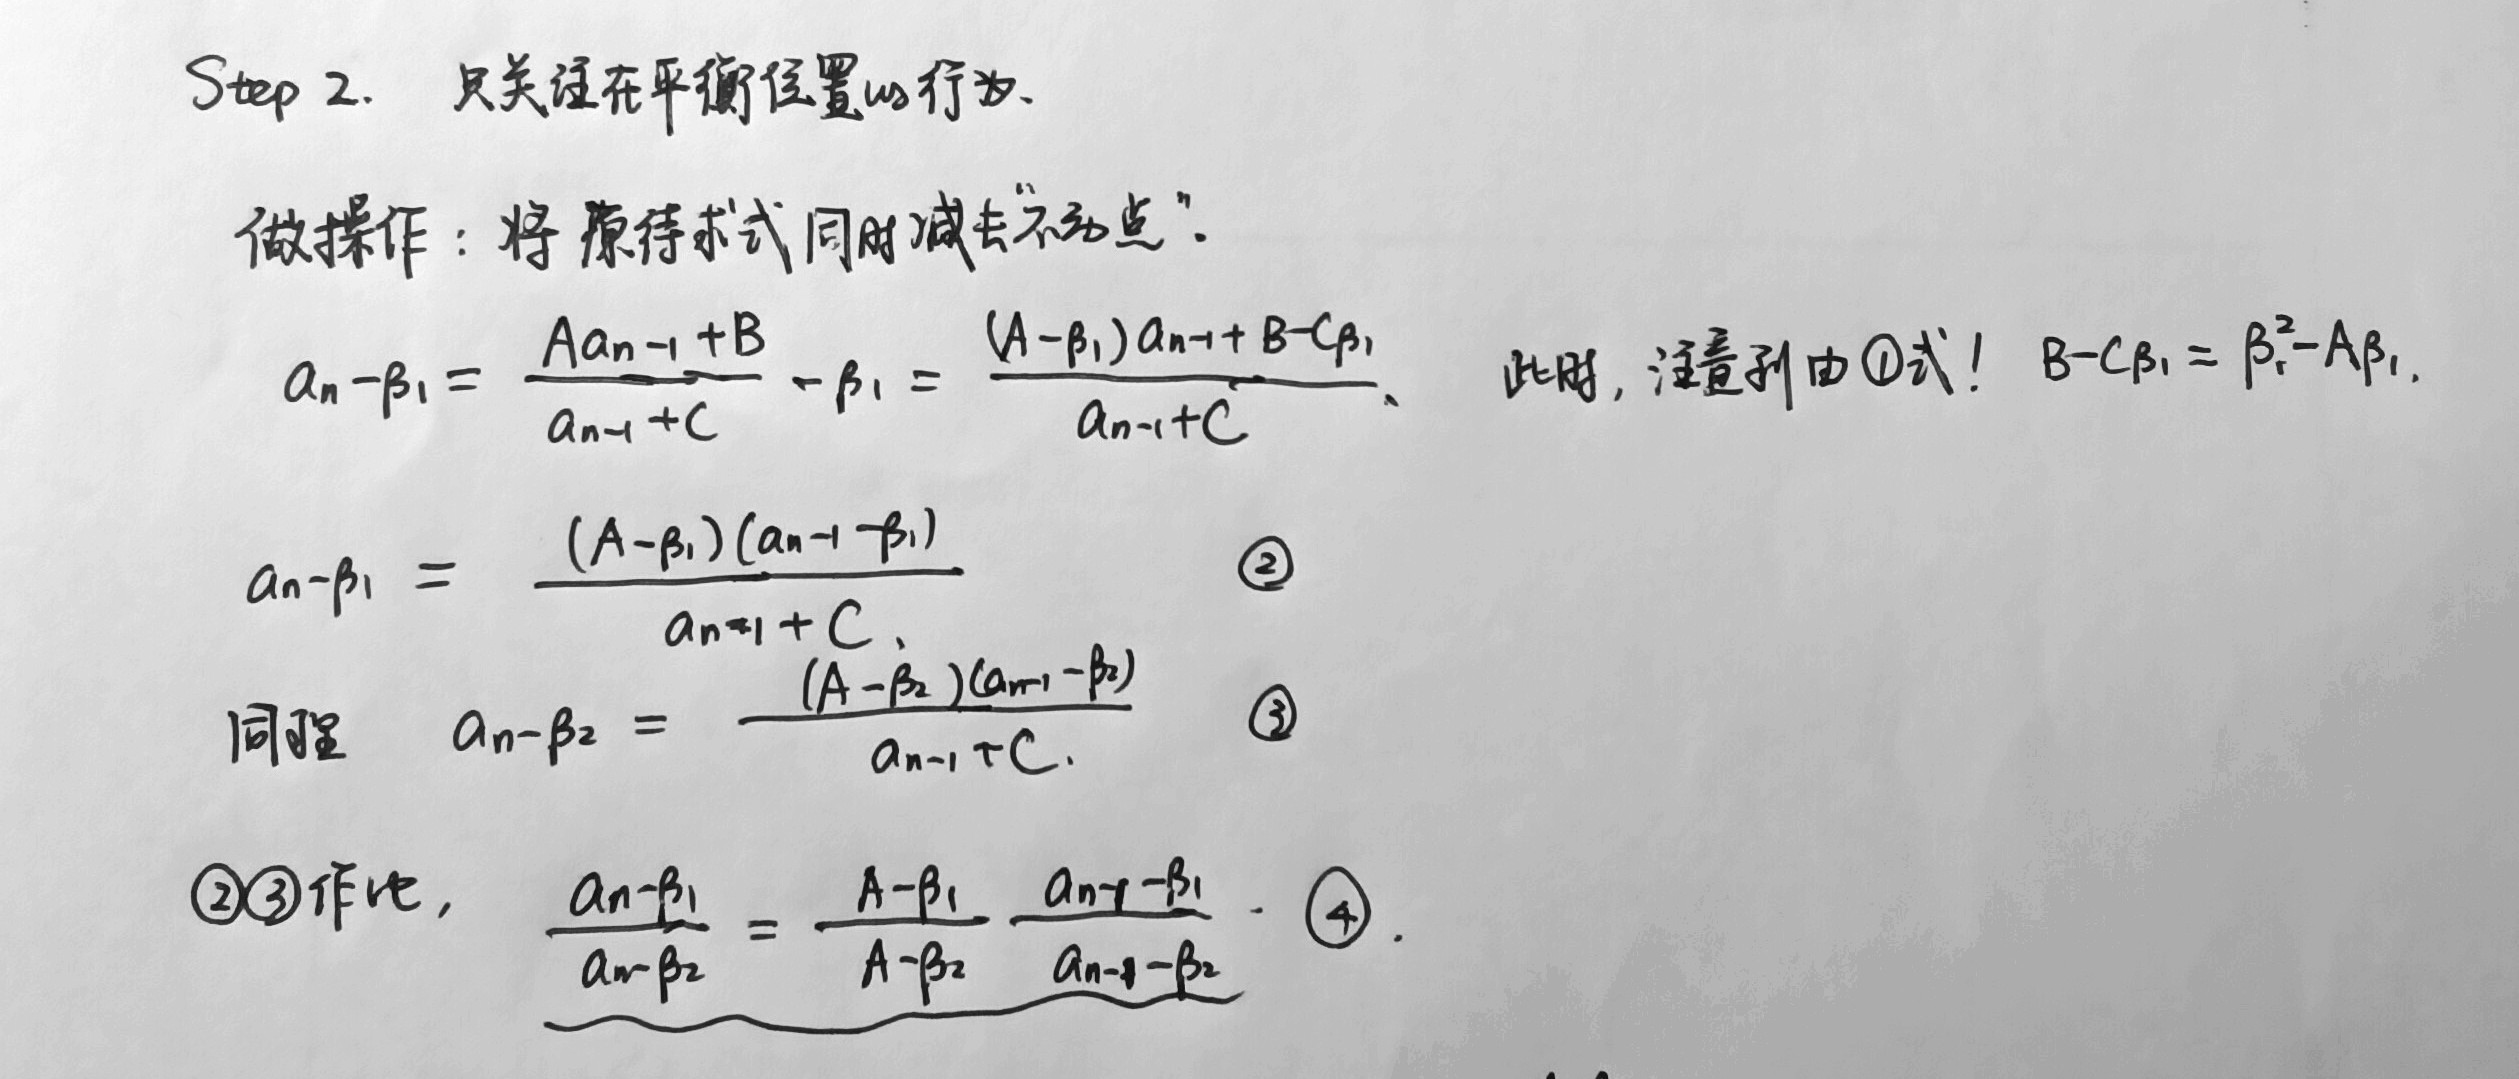 Step 2. 只关注在平衡位置的行为.
做操作：将原待求式同时减去“不动点”.
aₙ-β₁ = (Aaₙ₋₁+B)/(aₙ₋₁+C) - β₁ = ((A-β₁)aₙ₋₁+B-Cβ₁)/(aₙ₋₁+C)、 此时，注意到由①式！ B-Cβ₁ = β₁²-Aβ₁.
aₙ-β₁ = ((A-β₁)(aₙ₋₁-β₁))/(aₙ₋₁+C)、 ②
同理 aₙ-β₂ = ((A-β₂)(aₙ₋₁-β₂))/(aₙ₋₁+C). ③
②③作比, (aₙ-β₁)/(aₙ-β₂) = (A-β₁)/(A-β₂) (aₙ₋₁-β₁)/(aₙ₋₁-β₂) · ④.